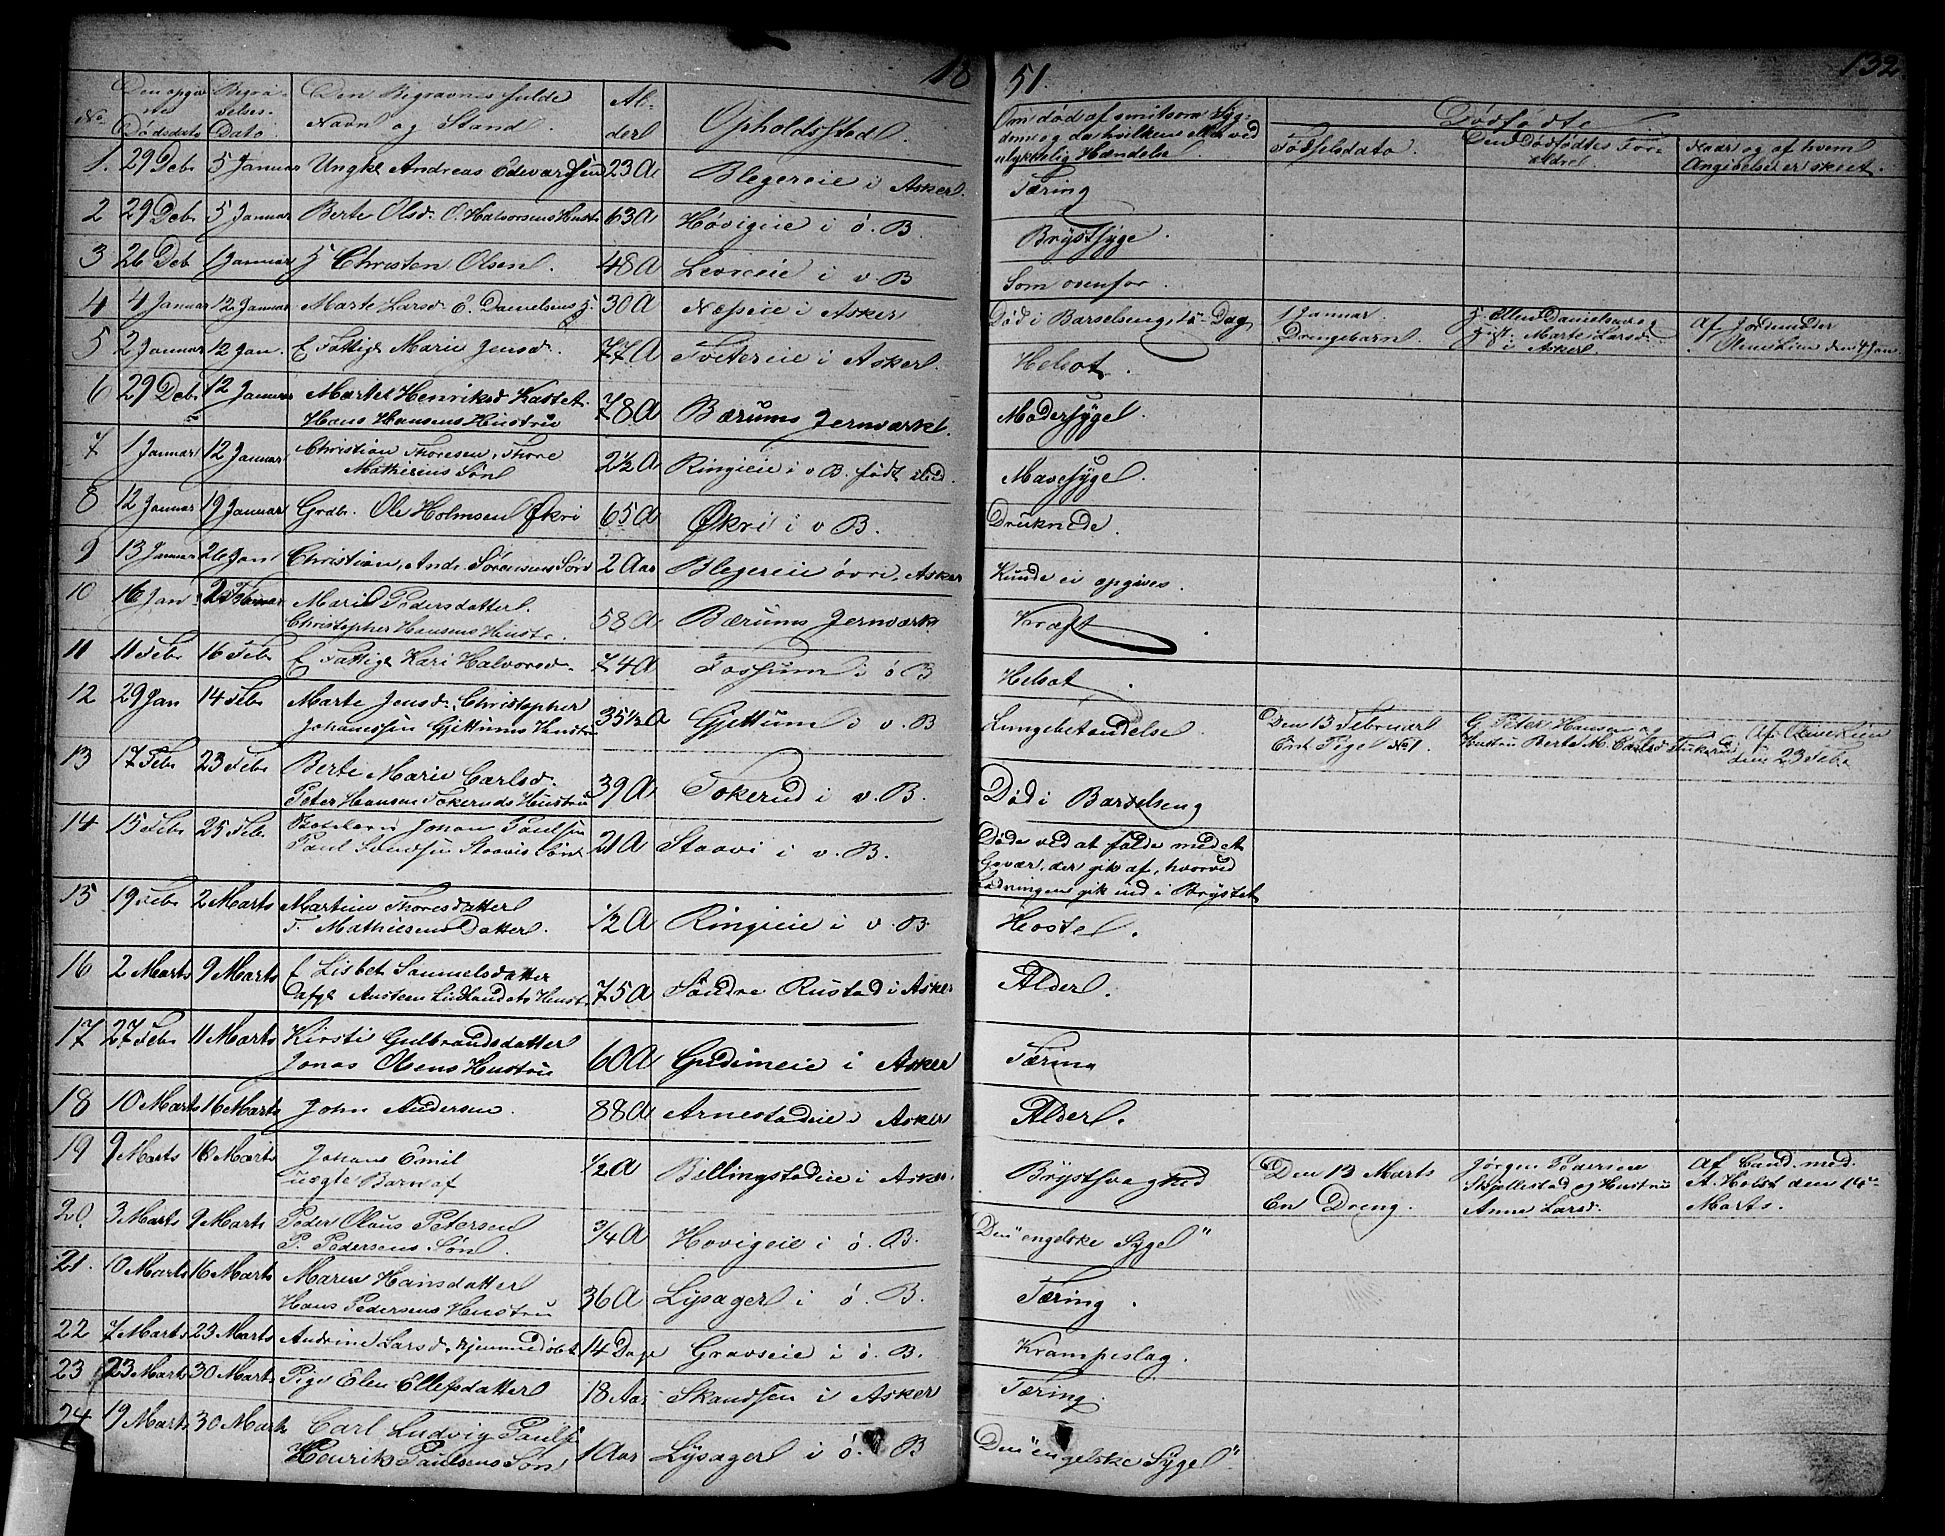 18 51. 132
No. Den opgivne Dødsdato Begravelses-Dato Den Begravnes fulde Navn og Stand. Alderl Opholdssted. Om død af smitsom Sygdom og da hvilken eller ved ulykkelig Hændelse. Dødfødte
Fødselsdato. Den Dødfødtes Forældrel. Naar og af hvem Angivelse er skeet.
1. 29 Debr 5 Januar Ungkl Andreas Edevardsen 23 A Blegereie i Asker. Tæring
2 29 Debr 5 Januar Berte Olsd. O. Halvorsens Hustr 63 A Høvigeie i ö. B. Brystsyge.
3 26 Deb 1 Januar Christen Olsen. 48 A Levreeie i v B Som ovenfor.
4 4 Januar 12 Januar Marte Larsd. E. Danielsens 30 A Næseie i Asker Død i Barselseng, Dag 1 Januar. Drengebarn. Ellen Danielsen og Marte Larsd. i Asker. Af Jordemoder Olava Lien den 4 Jan
5 2 Januar 12 Jan. Fattige Marie Jensd. 77 A Tvetereie i Asker. Helsot.
6 29 Debr 12 Januar Marte Henriksd Kastet.
Hans Hansens Hustru 78 A Bærums Jernværk. Modersygel.
7 1 Januar 12 Januar Christian Thoresen, Thore
Mathisens Sön 2½ A Ringieie i v B. født ibid. Mavesygel.
8 12 Januar 19 Januar Grdbr. Ole Holmsen Økri 65 A Økri i v B. Druknede.
9 13 Januar 26 Jan Christian, Andr. Sörensens Sön 2 Aar Blegereie övri, Asker Kunde ei opgives.
10 16 Jan 2 Februar Marie Pedersdatterl.
Christopher Hansens Hustr. 58 A Bærums Jernværk Kræft
11 11 Febr 16 Febr Fattige Kari Halvorsd. 74 A Fossum i ö B Helsot.
12 29 Jan 14 Febr Marte Jensd., Christopher
Johannessen Gjettums Hustru 35½ A Gjettum i v. B Lungebetændelse. Den 13 Februarl En Pige No 1. G. Peter Hansen og Hustru Berte M. Carlsd Tokerud Af Olava Lien den 23 Febr
13 17 Febr 23 Febr Berte Marie Carlsd.
Peter Hansens Tokeruds Hustru 39 A Tokerud i v. B. Død i Barselseng
14 15 Febr 25 Febr Johan Paulsen
Paul Svendsen Staavis Sön 21 A Staavi i v. B. Døde ved at falde med et
Gevær, der gik af, hvorved
Ladningen gik ind i Brystet
15 19 Febr 2 Marts Martine Thoresdatterl
T. Mathisens Datterl. ½ A Ringieie i v. B. Hostel.
16 2 Marts 9 Marts Lisbet Samuelsdatter
Austens Lidlandets Hustr. 75 A Söndre Rustad i Asker Alderl.
17 27 Febr 11 Marts Kirsti Gulbrandsdatter
Jonas Olsens Hustru 60 A Gudimeie i Asker Tæring
18 10 Marts 16 Marts John Andersen. 88 A Arnestadeie i Asker Alderl.
19 9 Marts 16 Marts Johans Emil
uægte Barn af ½ A Billingstadeie i Asker. Brystsvaghed Den 13 Marts En Dreng. Jörgen Pedersen Skjellestad og Hustru Anne Larsd. Af Cand. med. A. Holst den Marts.
20 3 Marts 9 Marts Peder Olaus Petersen
P. Pedersens Sönl. ¾ A Hovigeie i ö. B. Den "engelske Sygel"
21. 10 Marts 16 Marts Maren Hansdatterl
Hans Pedersens Hustru 36 A Lysagerl i ö. B. Tæring.
22 7 Marts 23 Marts Andrine Larsd. hjemmedöbt 14 Dage Gravseie i ö. B. Krampeslag.
23 23 Marts 30 Marts Pige Elen Ellefsdatterl 18 Aar Skandsen i Asker Tæring.
24 19 Marts 30 Marts Carl Ludvig Paulsen
Henrik Paulsens Sönl 1 Aar Lysagerl i ö. B Den "engelske Sygel"